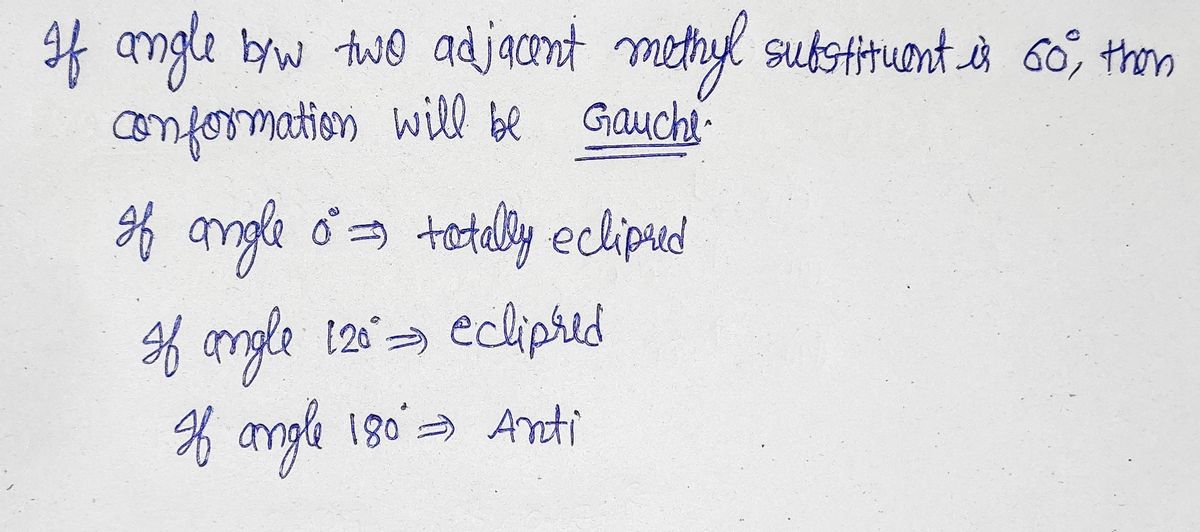 If angle b/w two adjacent methyl substituent is 60°, then
conformation will be Gauche.
If angle 0° ⇒ totally eclipsed
If angle 120° ⇒ eclipsed
If angle 180° ⇒ Anti